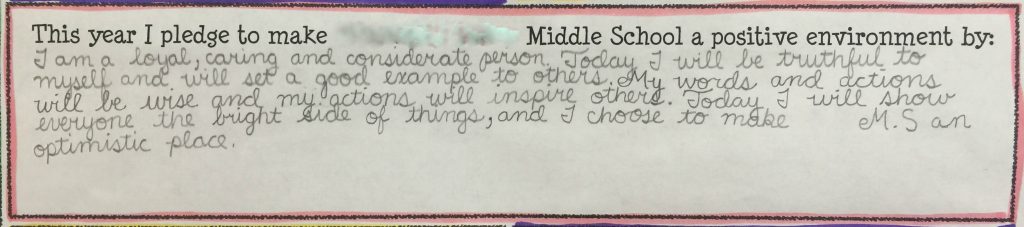 This year I pledge to make Middle School a positive environment by:
I am a loyal, caring and considerate person. Today I will be truthful to
myself and will set a good example to others. My words and actions
will be wise and my actions will inspire others. Today I will show
everyone the bright side of things, and I choose to make M.S an
optimistic place.